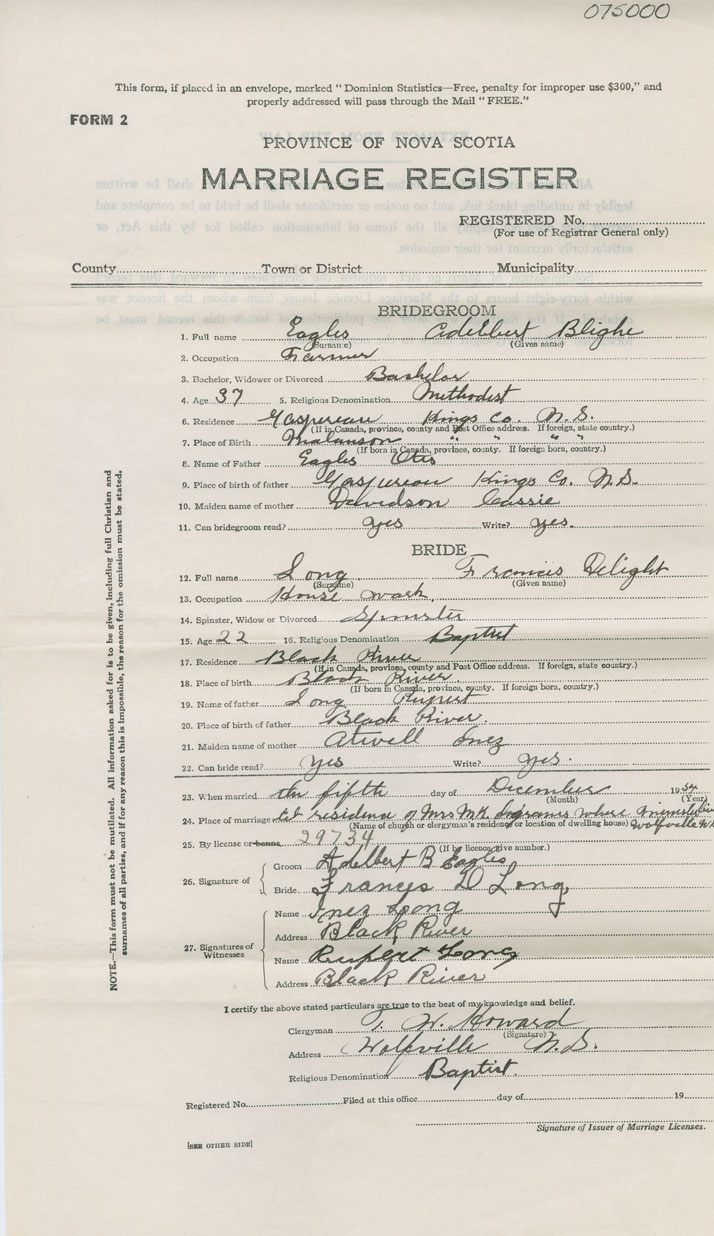 075000
This form, if placed in an envelope, marked "Dominion Statistics—Free, penalty for improper use $300," and
properly addressed will pass through the Mail "FREE."
FORM 2
PROVINCE OF NOVA SCOTIA
MARRIAGE REGISTER
REGISTERED No.
(For use of Registrar General only)
County Town or District Municipality
BRIDEGROOM
1. Full name Eagles Adelbert Blighe
(Surname) (Given name)
2. Occupation Farmer
3. Bachelor, Widower or Divorced Bachelor
4. Age 37 5. Religious Denomination Methodist
6. Residence Gaspereau Kings Co. N.S.
(If in Canada, province, county and Post Office address. If foreign, state country.)
7. Place of Birth Melanson " " " "
(If born in Canada, province, county. If foreign born, country.)
8. Name of Father Eagles Otis
9. Place of birth of father Gaspereau Kings Co. N.S.
10. Maiden name of mother Davidson Cassie
11. Can bridegroom read? yes Write? yes.
BRIDE
12. Full name Long Francis Delight
(Surname) (Given name)
13. Occupation House work
14. Spinster, Widow or Divorced Spinster
15. Age 22 16. Religious Denomination Baptist
17. Residence Black River
(If in Canada, province, county and Post Office address. If foreign, state country.)
18. Place of birth Black River
(If born in Canada, province, county. If foreign born, country.)
19. Name of father Long Rupert
20. Place of birth of father Black River.
21. Maiden name of mother Atwell Inez
22. Can bride read? yes Write? yes.
23. When married the fifth day of December 19
(Month) (Year)
24. Place of marriage At residence of Mrs M.K. where Wolfville
(Name of church or clergyman's residence or location of dwelling house)
25. By license or banns 29734
(If by licence give number.)
26. Signature of
Groom Adelbert B Eagles
Bride Francis D Long
27. Signatures of Witnesses
Name Inez Long
Address Black River
Name Rupert Long
Address Black River
I certify the above stated particulars are true to the best of my knowledge and belief.
Clergyman T. W. Howard
(Signature)
Address Wolfville N.S.
Religious Denomination Baptist.
Registered No. Filed at this office day of 19
Signature of Issuer of Marriage Licenses.
[SEE OTHER SIDE]
NOTE.—This form must not be mutilated. All information asked for is to be given, including full Christian and
surnames of all parties, and if for any reason this is impossible, the reason for the omission must be stated.